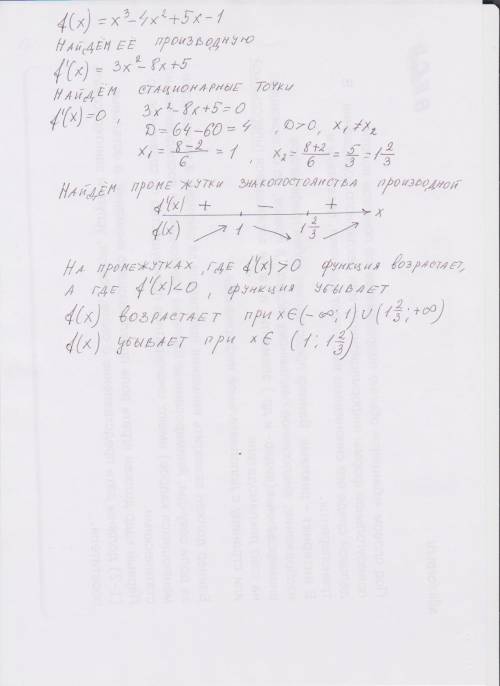 f(x) = x³-4x²+5x-1
НАЙДЁМ ЕЁ ПРОИЗВОДНУЮ
f'(x) = 3x²-8x+5
НАЙДЁМ СТАЦИОНАРНЫЕ ТОЧКИ
f'(x)=0, 3x²-8x+5=0
D=64-60=4, D>0, x₁≠x₂
x₁=(8-2)/6=1, x₂=(8+2)/6=5/3=1 2/3
НАЙДЁМ ПРОМЕЖУТКИ ЗНАКОПОСТОЯНСТВА ПРОИЗВОДНОЙ
f'(x) + - + x
f(x) ↗ 1 ↘ 1 2/3 ↗
НА ПРОМЕЖУТКАХ, ГДЕ f'(x)>0 ФУНКЦИЯ ВОЗРАСТАЕТ,
А ГДЕ f'(x)<0, ФУНКЦИЯ УБЫВАЕТ
f(x) ВОЗРАСТАЕТ ПРИ x∈(-∞; 1)∪(1 2/3; +∞)
f(x) УБЫВАЕТ ПРИ x∈ (1; 1 2/3)